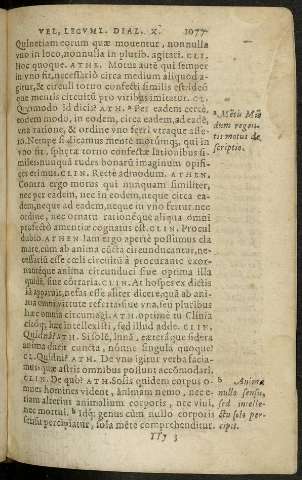 VEL, LEGVM. DIAL. X. 1077
Quinetiam eorum quæ mouentur, nonnulla
vno in loco, nonnulla in plurib. agitari. CLI.
Hoc quoque. ATHE. Motus autē qui semper
in vno fit, necessariò circa medium aliquod a-
gitur, & circuli torno confecti similis est: idcó-
que mentis circuitū pro viribus imitatur. CL.
Quomodo id dicis? ATHE. ᵃ Per eadem certè,
eodem modo, in eodem, circa eadem, ad eadē,
vna ratione, & ordine vno ferri vtraque asse-
ro. Nempe si dicamus mentē motúmq;, qui in
vno fit, sphæræ torno confectæ lationibus si-
miles: nunquā rudes bonarū imaginum opifi-
ces erimus. CLIN. Rectè admodum. ATHEN.
Contra ergo motus qui nunquam similiter,
nec per eadem, nec in eodem, neque circa ea-
dem, neque ad eadem, neque in vno fertur: nec
ordine, nec ornatu rationéque aliqua omni
profectò amentiæ cognatus est. CLIN. Procul
dubio. ATHEN. Iam ergo apertè possumus cla
mare, cùm ab anima cūcta circunducantur, ne-
cessariū esse cœli circuitū à procurante exor-
nantéque anima circunduci siue optima illa
quidē, siue cōtraria. CLIN. At hospes ex dictis
iā apparuit, nefas esse aliter dicere, quā ab ani-
ma omni virtute refertissima siue vna, seu pluribus
hæc omnia circumagi. ATH. optimè tu Clinia
dictóq; hæc intellexisti, sed illud adde. CLIN.
Quidnā? ATH. Si solē, lunā, cæteráque sidera
anima ducit cuncta, nónne singula quoque?
CL. Quidni? ATH. De vno igitur verba facia-
mus: quæ astris omnibus possunt accōmodari.
CLIN. De quo? ATH. Solis quidem corpus o-
mnes homines vident, animam nemo, nec e-
tiam alterius animalium corporis, nec viui,
nec mortui. ᵇ Idq; genus cùm nullo corporis
sensu percipiatur, sola mēte comprehenditur.
YYy 3
ᵃ Mētis Mū
dum regen-
tis motus de
scriptio.
ᵇ Anima
nulla sensu,
sed intelle-
ctu solo per-
cipit.